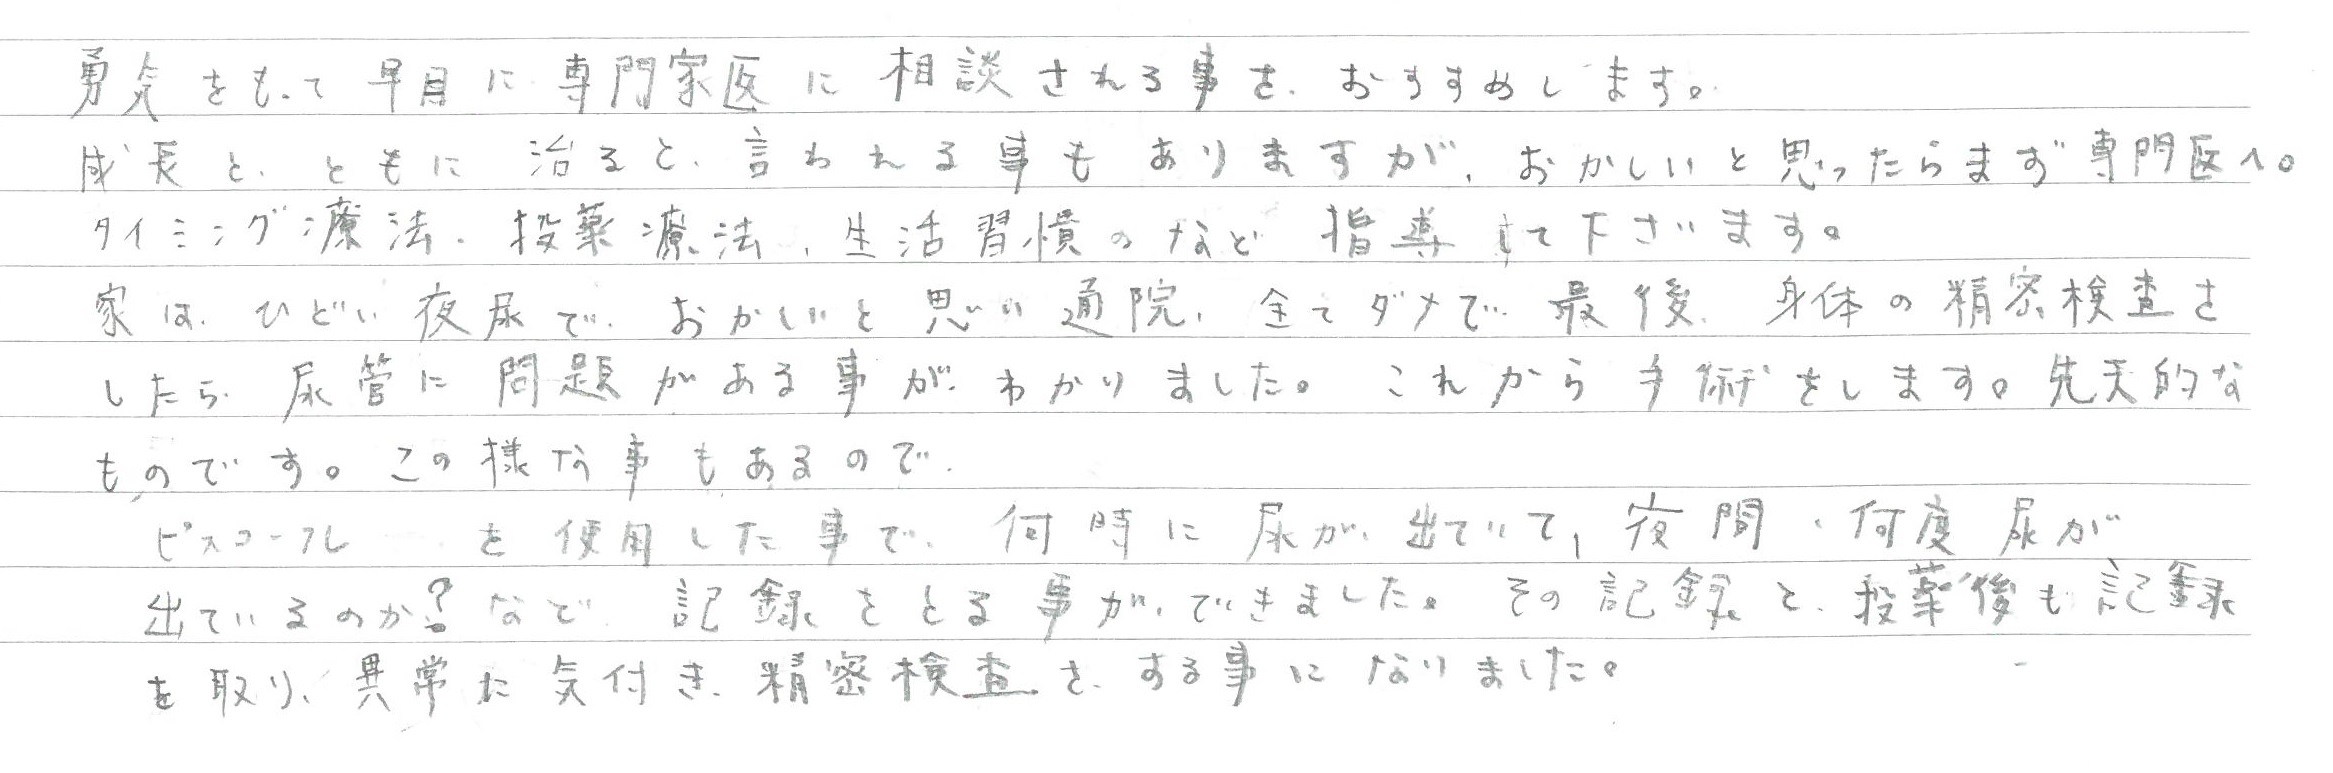 勇気をもって早目に専門家医に相談される事を、おすすめします。
成長と、ともに治ると、言われる事もありますが、おかしいと思ったらまず専門医へ。
タイミング療法、投薬療法、生活習慣のなど指導して下さいます。
家は、ひどい夜尿で、おかしいと思い通院、全てダメで最後、身体の精密検査を
したら、尿管に問題がある事が、わかりました。これから手術をします。先天的な
ものです。この様な事もあるので、
ピスコール を使用した事で、何時に尿が、出ていて、夜間、何度尿が
出ているのか?など 記録をとる事が、できました。その記録と、投薬後も記録
を取り、異常に気付き、精密検査を、する事になりました。